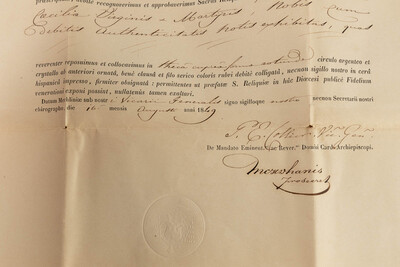 recognovimus et approbavimus Sacras
Cæcilia Virginis et Martyris, Nobis cum
debitis authenticitatis notis exhibitas, quas
reverenter reposuimus et collocavimus in theca cuprea forma rotunda circulo argenteo et
crystallo ab anteriori ornata, benè clausâ et filo serico coloris rubri debitè colligatâ, necnon sigillo nostro in cerâ
hispanicâ impresso, firmiter obsignatâ; permittentes ut præfatæ S. Reliquiæ in hâc Diœcesi publicè Fidelium
venerationi exponi possint, nullatenus tamen exaltari.
Datum Mechliniæ sub nostro Vicarii Generalis signo sigilloque nostro necnon Secretarii nostri
chirographo, die 16 mensis Augusti anni 1849
Vic. Gen.
De Mandato Eminent. ac Rever. Domini Card. Archiepiscopi.